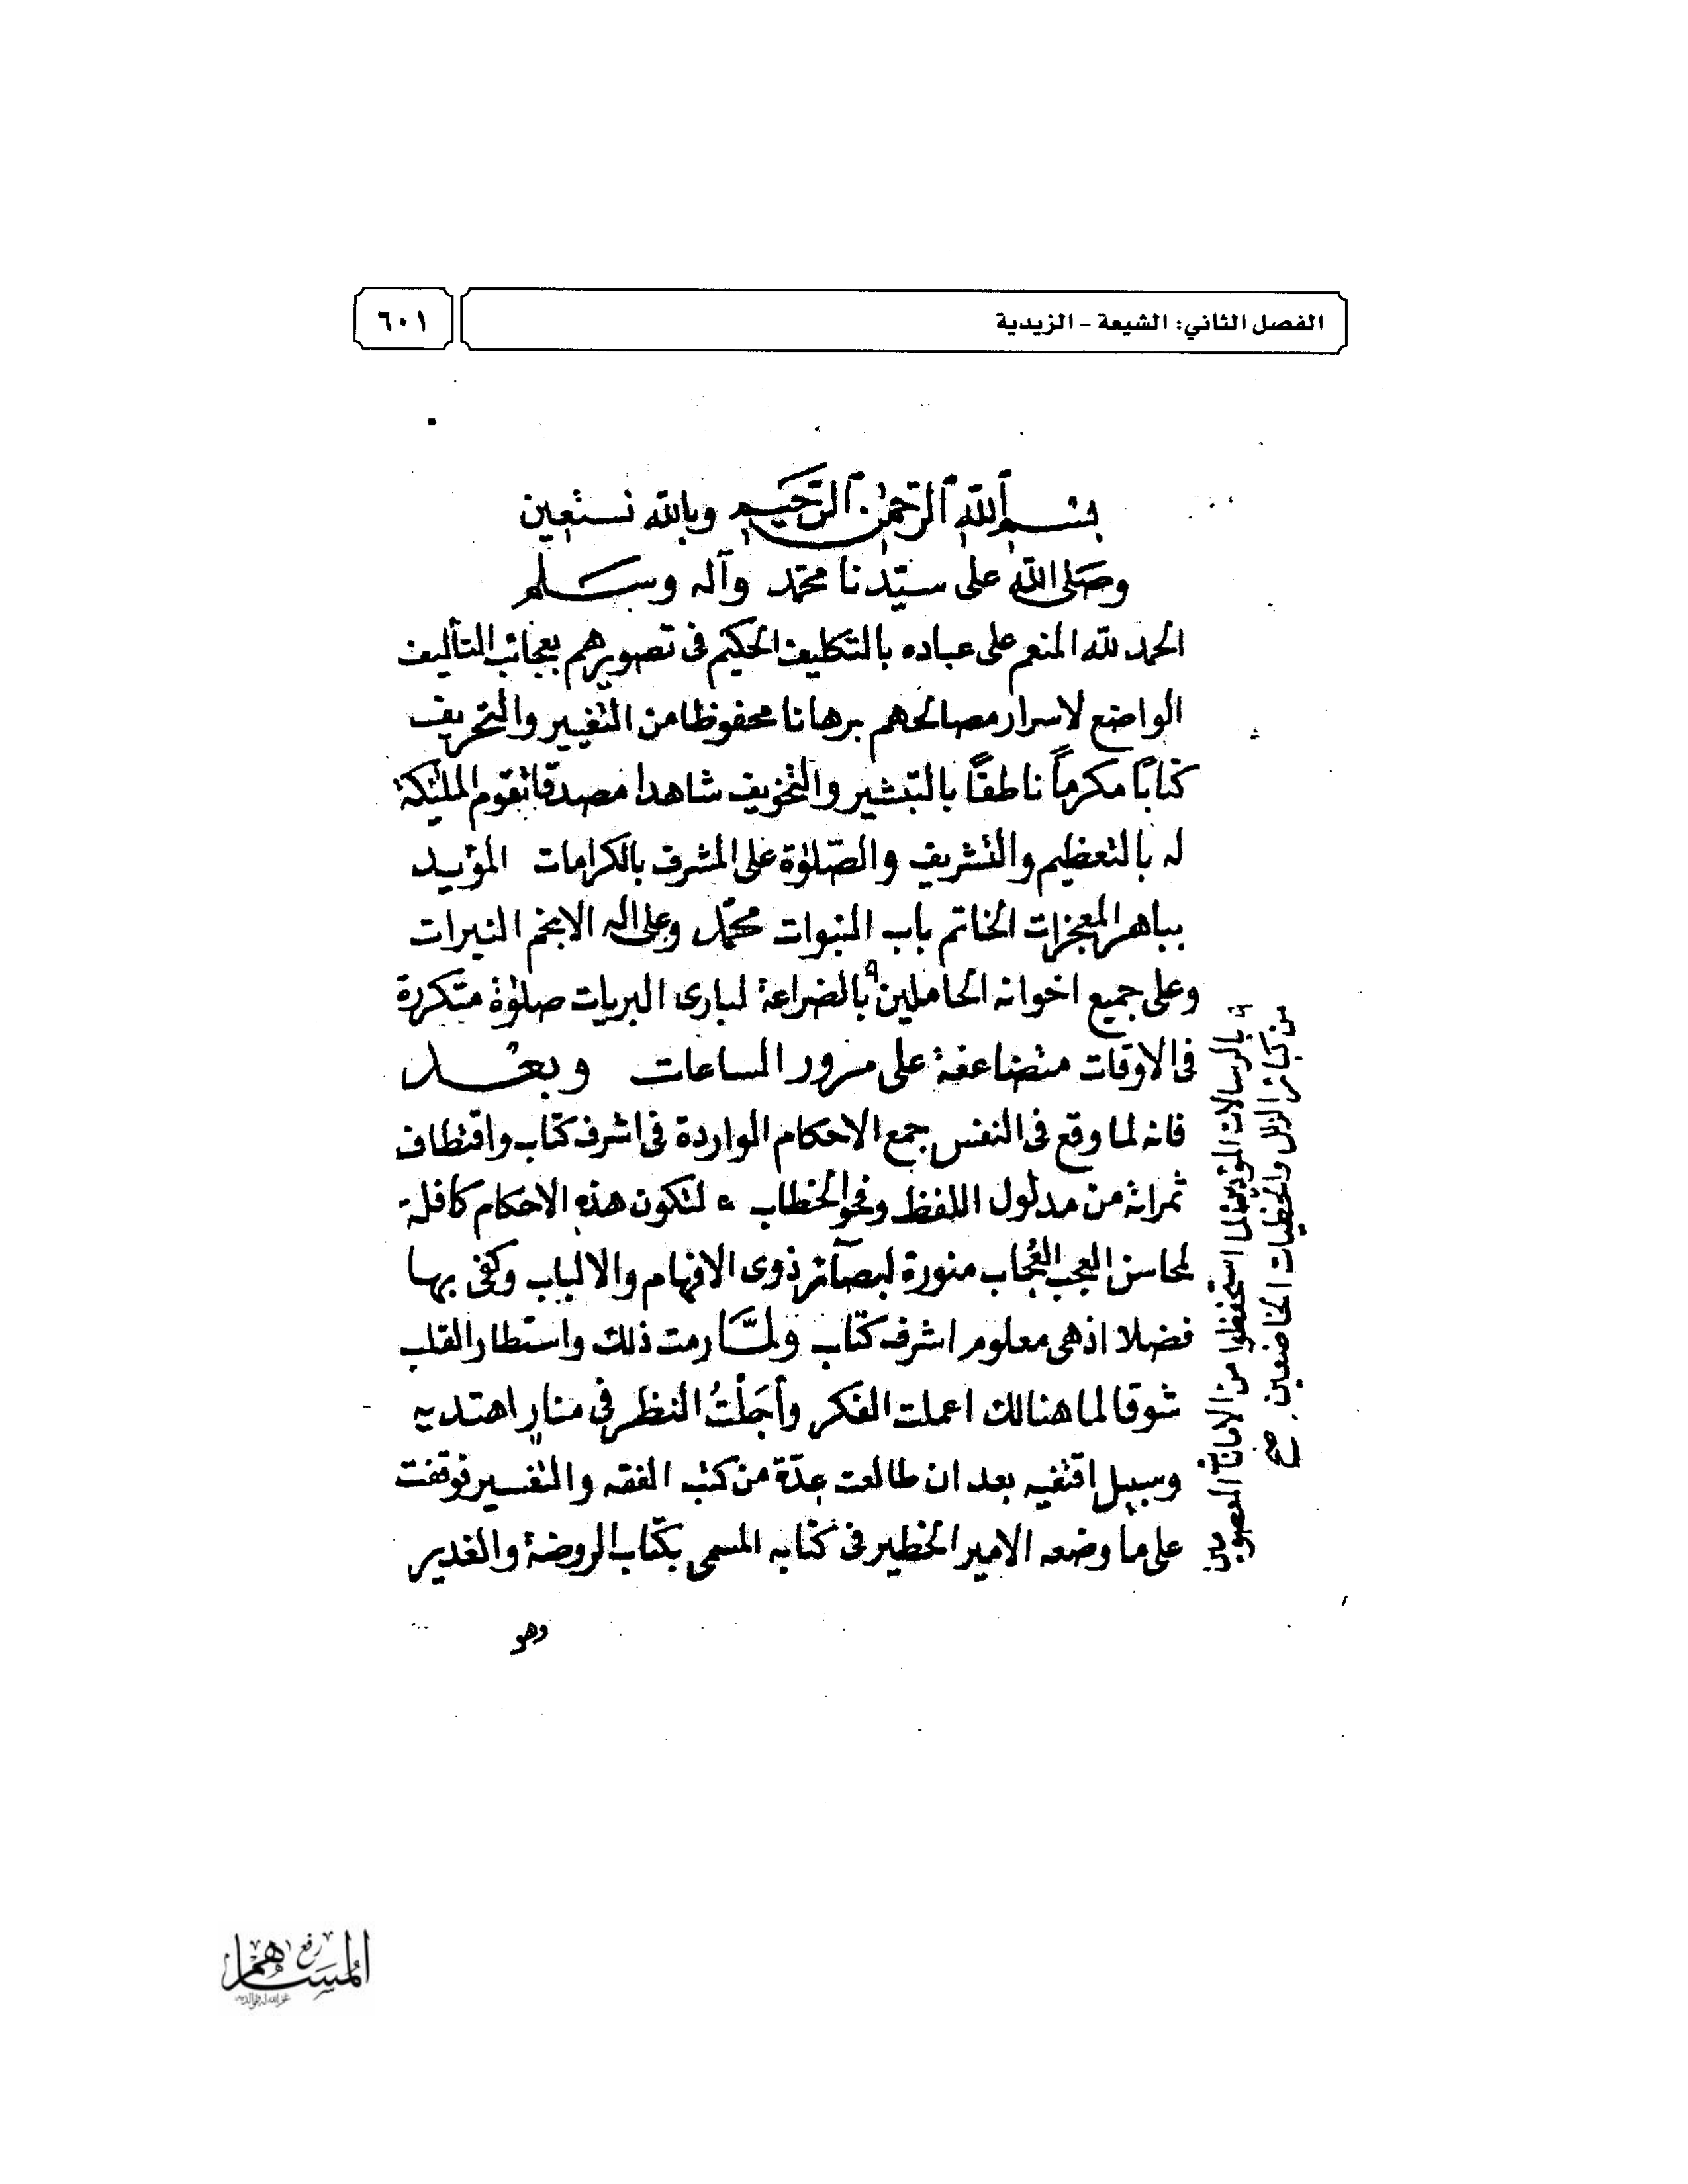 الفصل الثاني: الشيعة - الزيدية
٦٠١
بسم الله الرحمن الرحيم وبالله نستعين
وصلى الله على سيدنا محمد وآله وسلم
الحمد لله المنعم على عباده بالتكليف الحكيم فى تصويرهم بعجائب التأليف
الواضع لاسرار مصالحهم برهانا محفوظا من التغيير والتحريف
كتابًا مكرماً ناطقًا بالتبشير والتخويف شاهدا مصدقا تقوم الملئكة
له بالتعظيم والتشريف والصلوٰة على المشرف بالكرامات المؤيد
بباهر المعجزات الخاتم باب النبوات محمد وعلى اله الانجم النيرات
وعلى جميع اخوانه الحاملين بالضراعة لبارى البريات صلوٰة متكررة
فى الاوقات متضاعفة على مرور الساعات وبعد
فانه لما وقع فى النفس جمع الاحكام الواردة فى اشرف كتاب واقتطاف
ثمراته من مدلول اللفظ وفحو الخطاب لتكون هذه الاحكام كافلة
لمحاسن العجب العُجاب منورة لبصآئر ذوى الافهام والالباب وكفى بها
فضلا اذ هى معلوم اشرف كتاب ولمّا رمت ذلك واستطار القلب
شوقا لما هنالك اعملت الفكر وأجَلْتُ النظر فى منار اهتديه
وسبيل اقتفيه بعد ان طالعت عدّة من كتب الفقه والتفسير فوقفت
على ما وضعه الامير الخطير فى كتابه المسمى بكتاب الروضة والغدير
وهو
بالرسالات المؤدين لما استحفظوا من الامانات المعصومين
من كبائر الزلل والخطيات الخاضعين صح
المساهم
رفع
غفر الله له ولوالديه